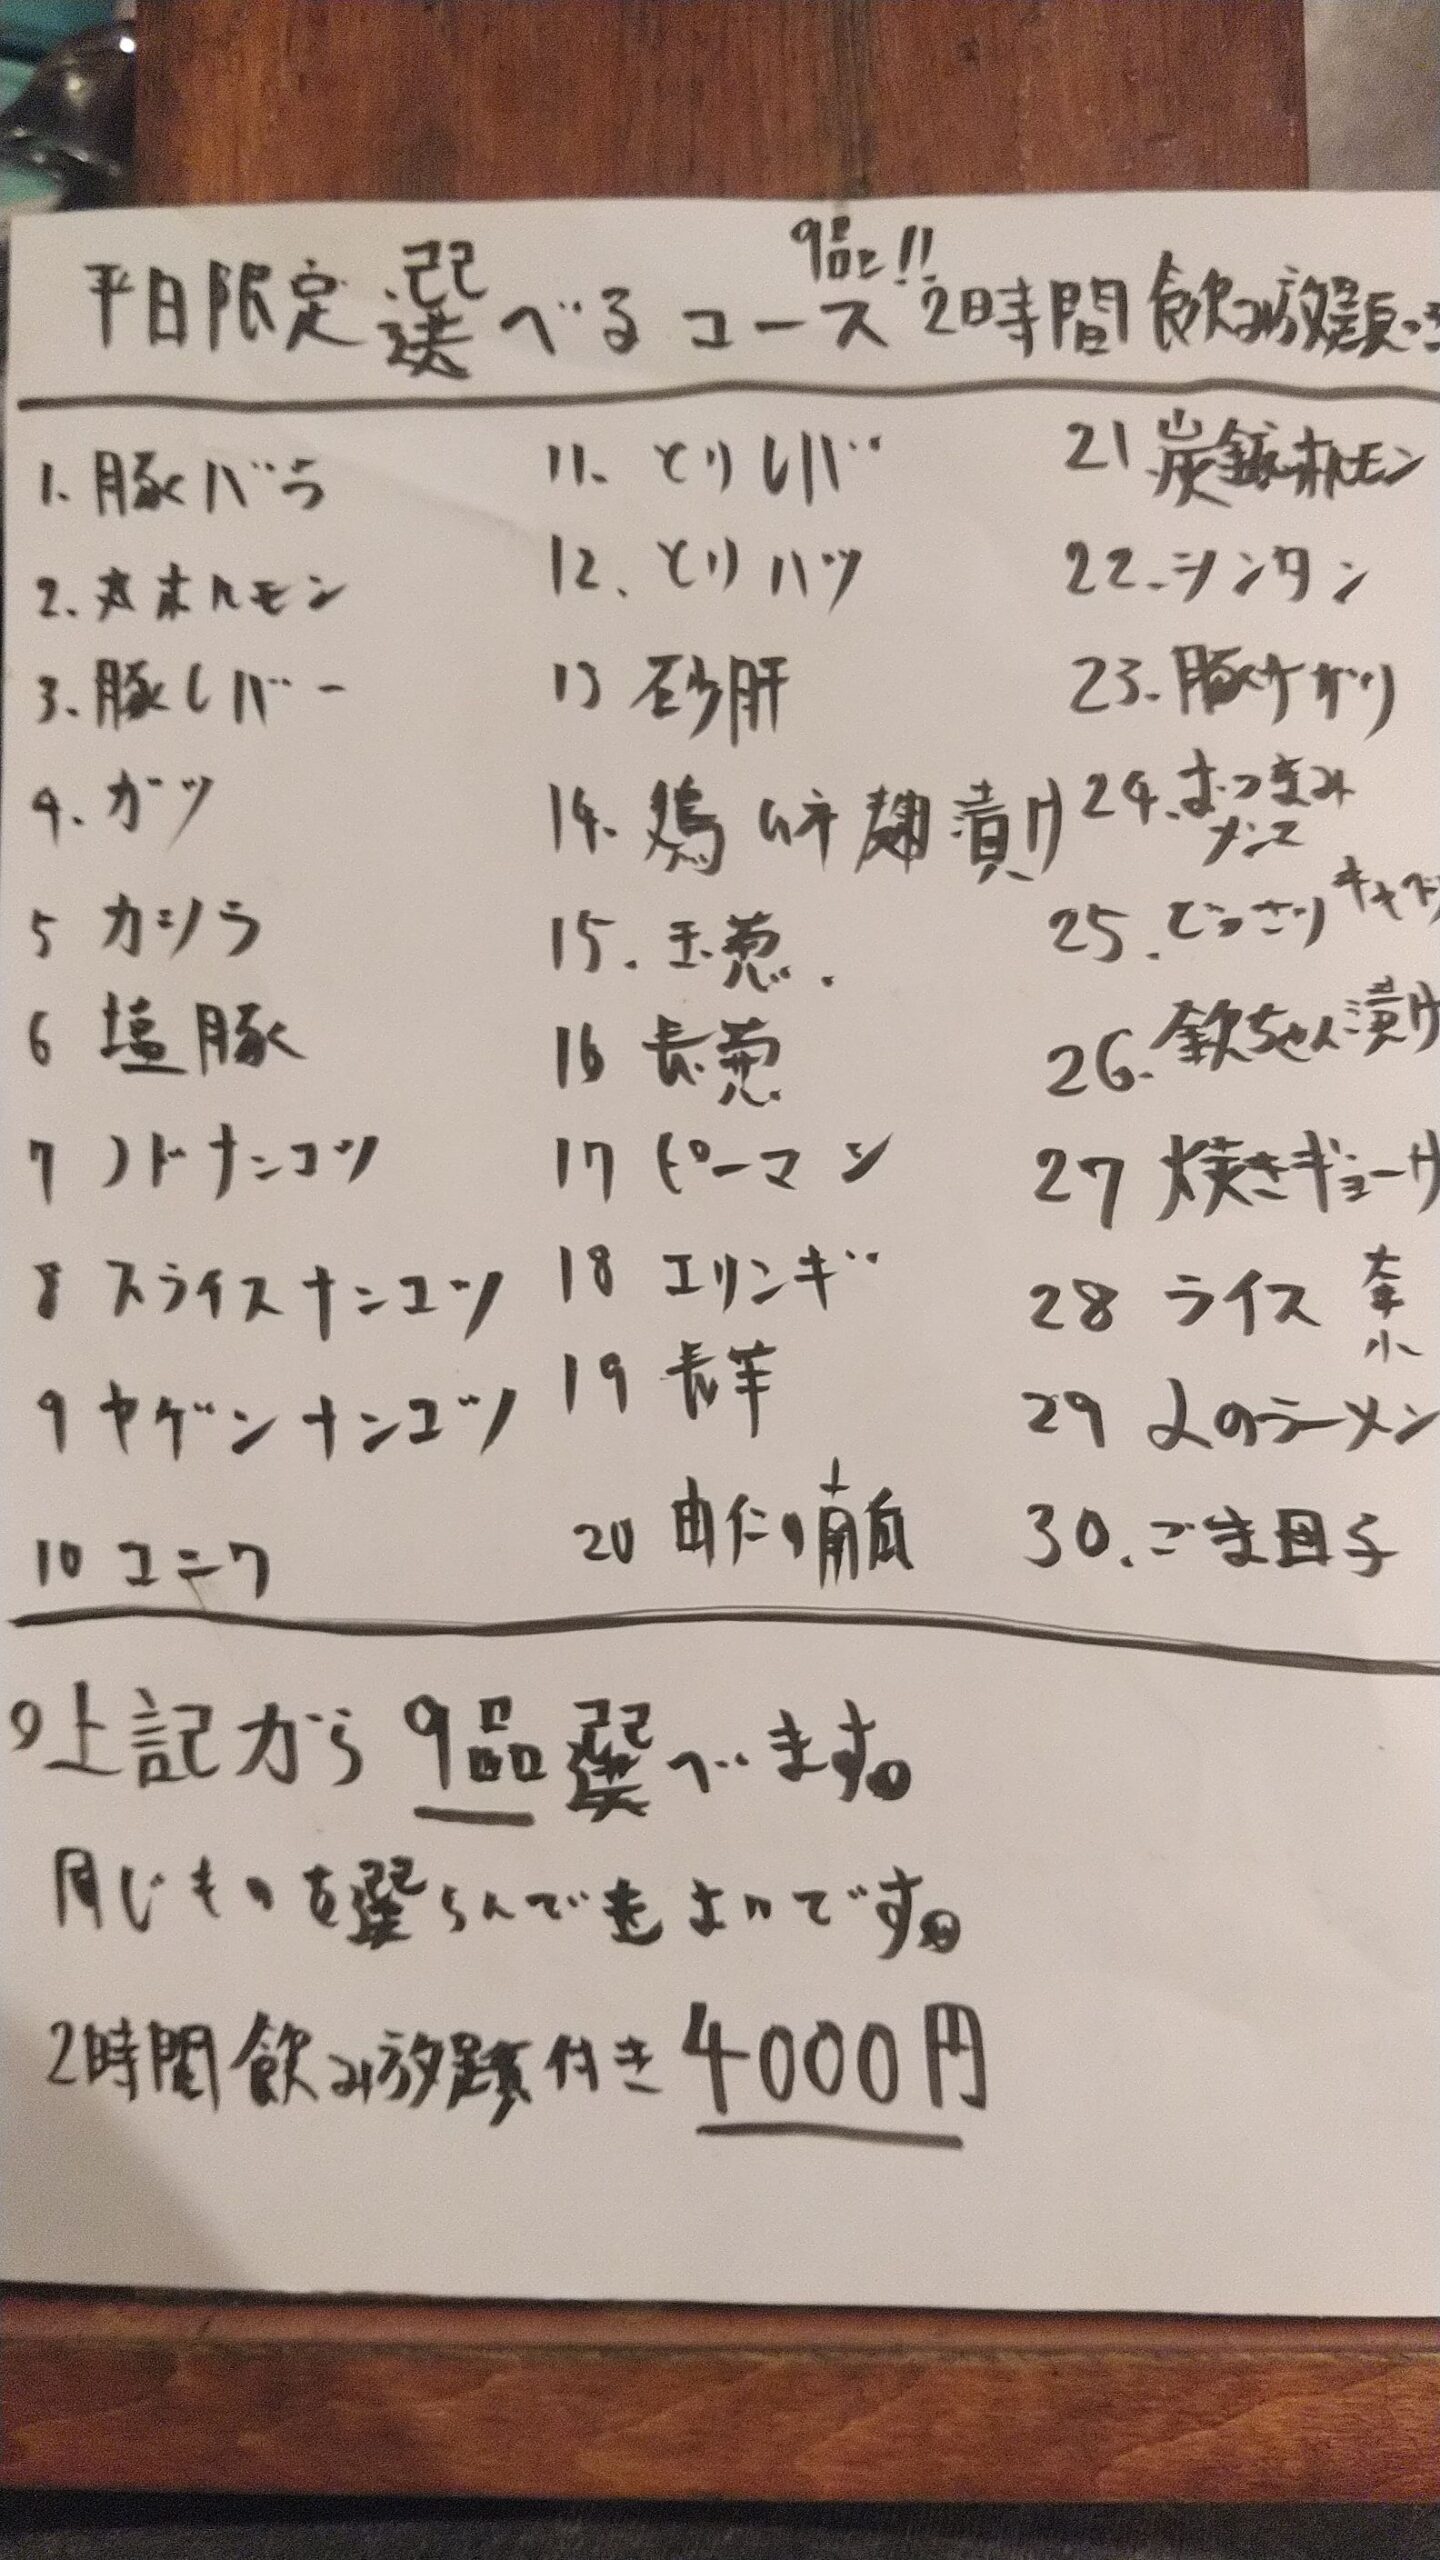 平日限定 選べるコース 9品と!! 2時間飲み放題
1. 豚バラ
2. 丸ホルモン
3. 豚レバー
4. ガツ
5 カシラ
6 塩豚
7 ノドナンコツ
8 スライスナンコツ
9 ヤゲンナンコツ
10 コニク
11. とりレバ
12. とりハツ
13 砂肝
14. 鶏ムネ麹漬け
15. 玉葱.
16 長葱
17 ピーマン
18 エリンギ
19 長芋
20 由仁の南瓜
21. 炭鉱ホルモン
22. シンタン
23. 豚サガリ
24. おつまみ
メンマ
25. どっさりキャベツ
26. 欽ちゃん漬け
27 焼きギョーザ
28 ライス 大 中 小
29 〆のラーメン
30. ごま団子
上記から9品選べます。
同じものを選らんでもよいです。
2時間飲み放題付き 4000円